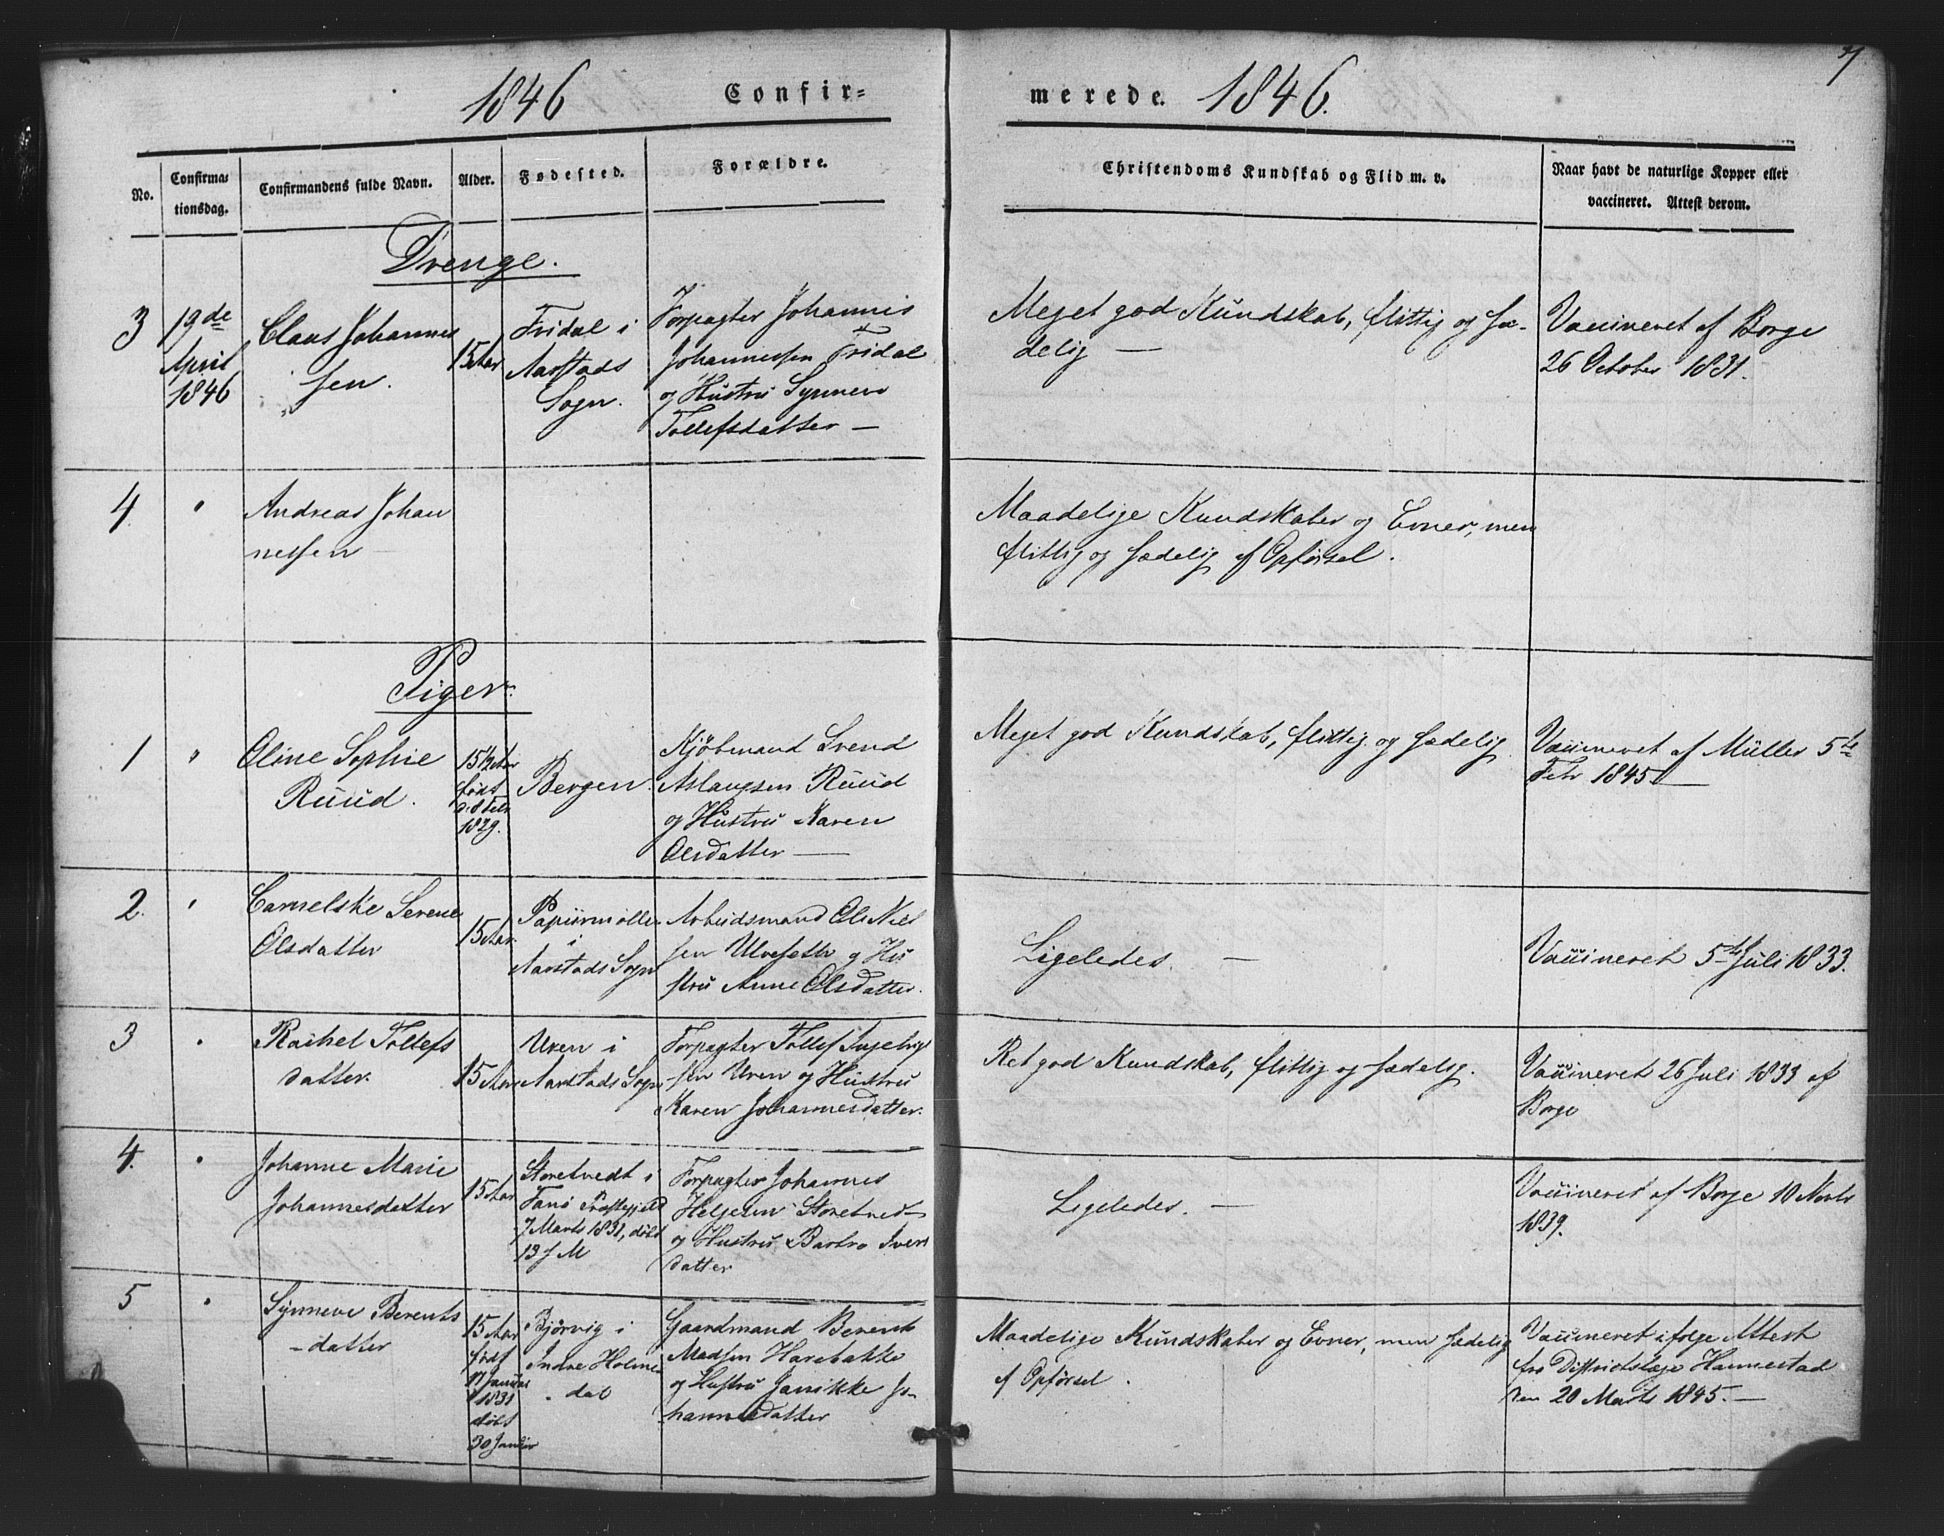 7
1846 Confir-
merede. 1846.
No.
Confirma-
tionsdag.
Confirmandens fulde Navn.
Alder.
Fødested.
Forældre.
Christendoms Kundskab og Flid m. v.
Naar havt de naturlige Kopper eller
vaccineret. Attest derom.
Drenge.
3
19de
April
1846
Claus Johannes
sen.
15 Aar
Fridal i
Aarstads
Sogn.
Forpagter Johannis
Johannessen Fridal
og Hustru Synneve
Tollefsdatter —
Meget god Kundskab, flittig og sæ-
delig —
Vaccineret af Borge
26 October 1831.
4.
"
Andreas Johan
nessen
Maadelige Kundskaber og Evner, men
flittig og sædelig af Opførsel.
Piger.
1
"
Oline Sophie
Ruud.
15 1/2 Aar
født
d. 8 Febr
1829.
Bergen.
Kjøbmand Svend
Aslaugsen Ruud
og Hustru Karen
Olsdatter —
Meget god Kundskab, flittig og sædelig
Vaccineret af Müller 5te
Febr 1845 —
2.
"
Cornelske Serene
Olsdatter
15 Aar.
Papiirmølle
i
Aarstads Sogn
Arbeidsmand Ole Niel
sen Ulvesætr og Hu
stru Anne Olsdatter.
Ligeledes. —
Vaccineret 5te Juli 1833.
3
"
Rachel Tollefs
datter.
15 Aar
Uren i
Aarstads Sogn
Forpagter Tollef Ingebrigt
sen Uren og Hustru
Karen Johannesdatter.
Ret god Kundskab, flittig og sædelig.
Vaccineret 26 Juli 1833 af
Borge
4.
"
Johanne Marie
Johannesdatter
15 Aar
Storetvedt i
Fanø Præstegjeld
7 Marts 1831, døbt
13 s M
Forpagter Johannes
Helgesen Storetvedt
og Hustru Barbro Ivers
datter
Ligeledes. —
Vaccineret af Borge 10 Marts
1839.
5
"
Synneve Berents
- datter
15 Aar
født
17 Januar
1831
døbt
30 Januar
Bjørvig i
Indre Holme
dal
Gaardmand Berent
Madsen Harebakke
og Hustru Jannikke Jo-
hannesdatter
Maadelige Kundskaber og Evner, men sædelig
af Opførsel.
Vaccineret ifølge Attest
fra Districtslæge Hannestad
den 20 Marts 1845. —